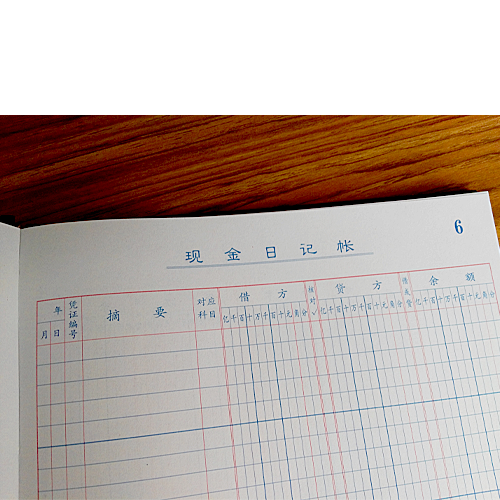 6
现金日记帐
年 凭证编号 摘要 对应科目 借方 核对 贷方 借或贷 余额
月 日 亿千百十万千百十元角分 √ 亿千百十万千百十元角分 亿千百十万千百十元角分